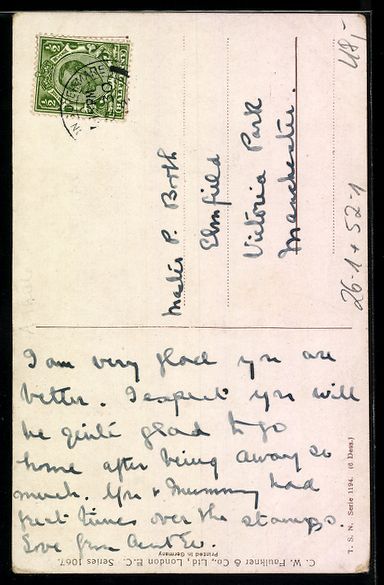 48,-
26-1 + 52-1
Master P. Booth
Elmfield
Victoria Park
Manchester.
I am very glad you are
better. I expect you will
be quite glad to go
home after being away so
much. You & Mummy had
great times over the stamps.
Love from Aunt
T. S. N. Serie 1194. (6 Dess.)
C. W. Faulkner & Co., Ltd, London E.C. Series 1067.
Printed in Germany